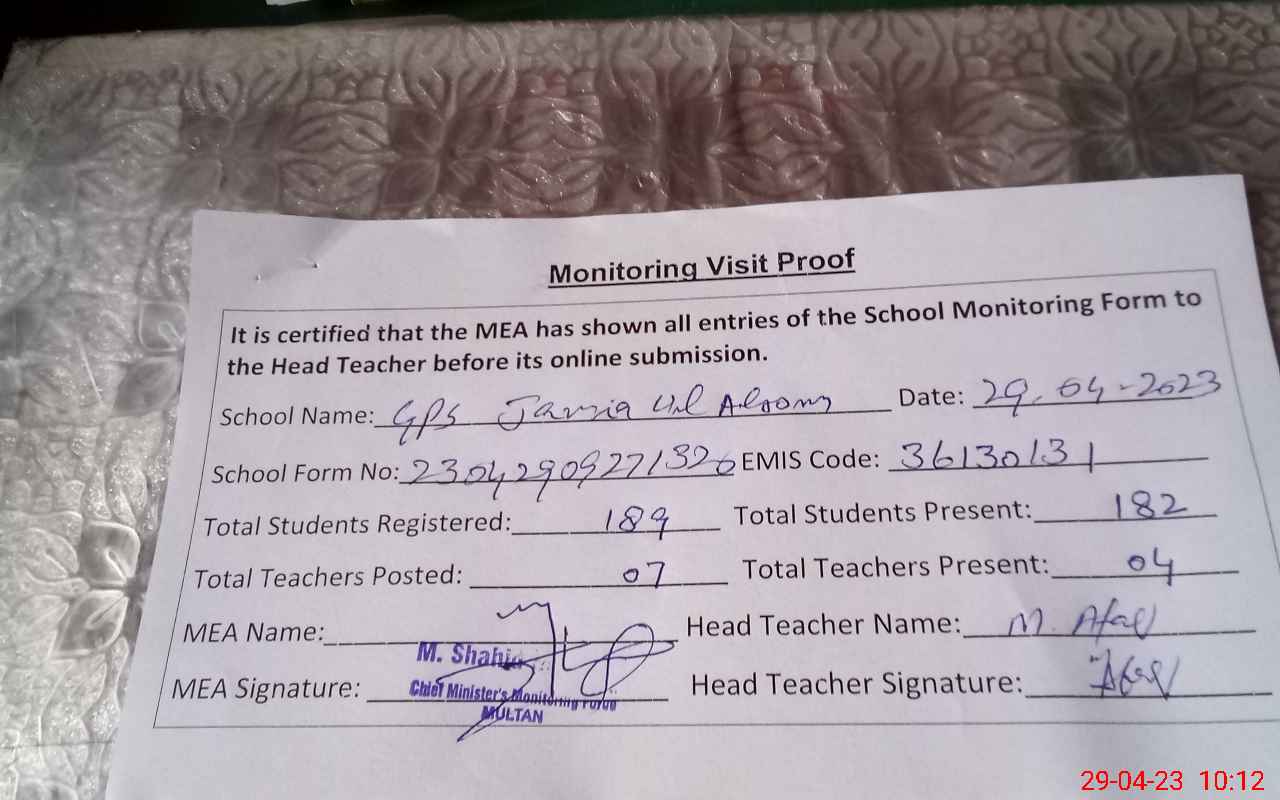 Monitoring Visit Proof
It is certified that the MEA has shown all entries of the School Monitoring Form to
the Head Teacher before its online submission.
School Name: GPS Jamia Ul Aloom Date: 29-04-2023
School Form No: 23042909271326 EMIS Code: 36130131
Total Students Registered: 189 Total Students Present: 182
Total Teachers Posted: 07 Total Teachers Present: 04
MEA Name: Head Teacher Name: M. Afzal
M. Shahid
MEA Signature: Head Teacher Signature: Afzal
Chief Minister's Monitoring Force
MULTAN
29-04-23 10:12